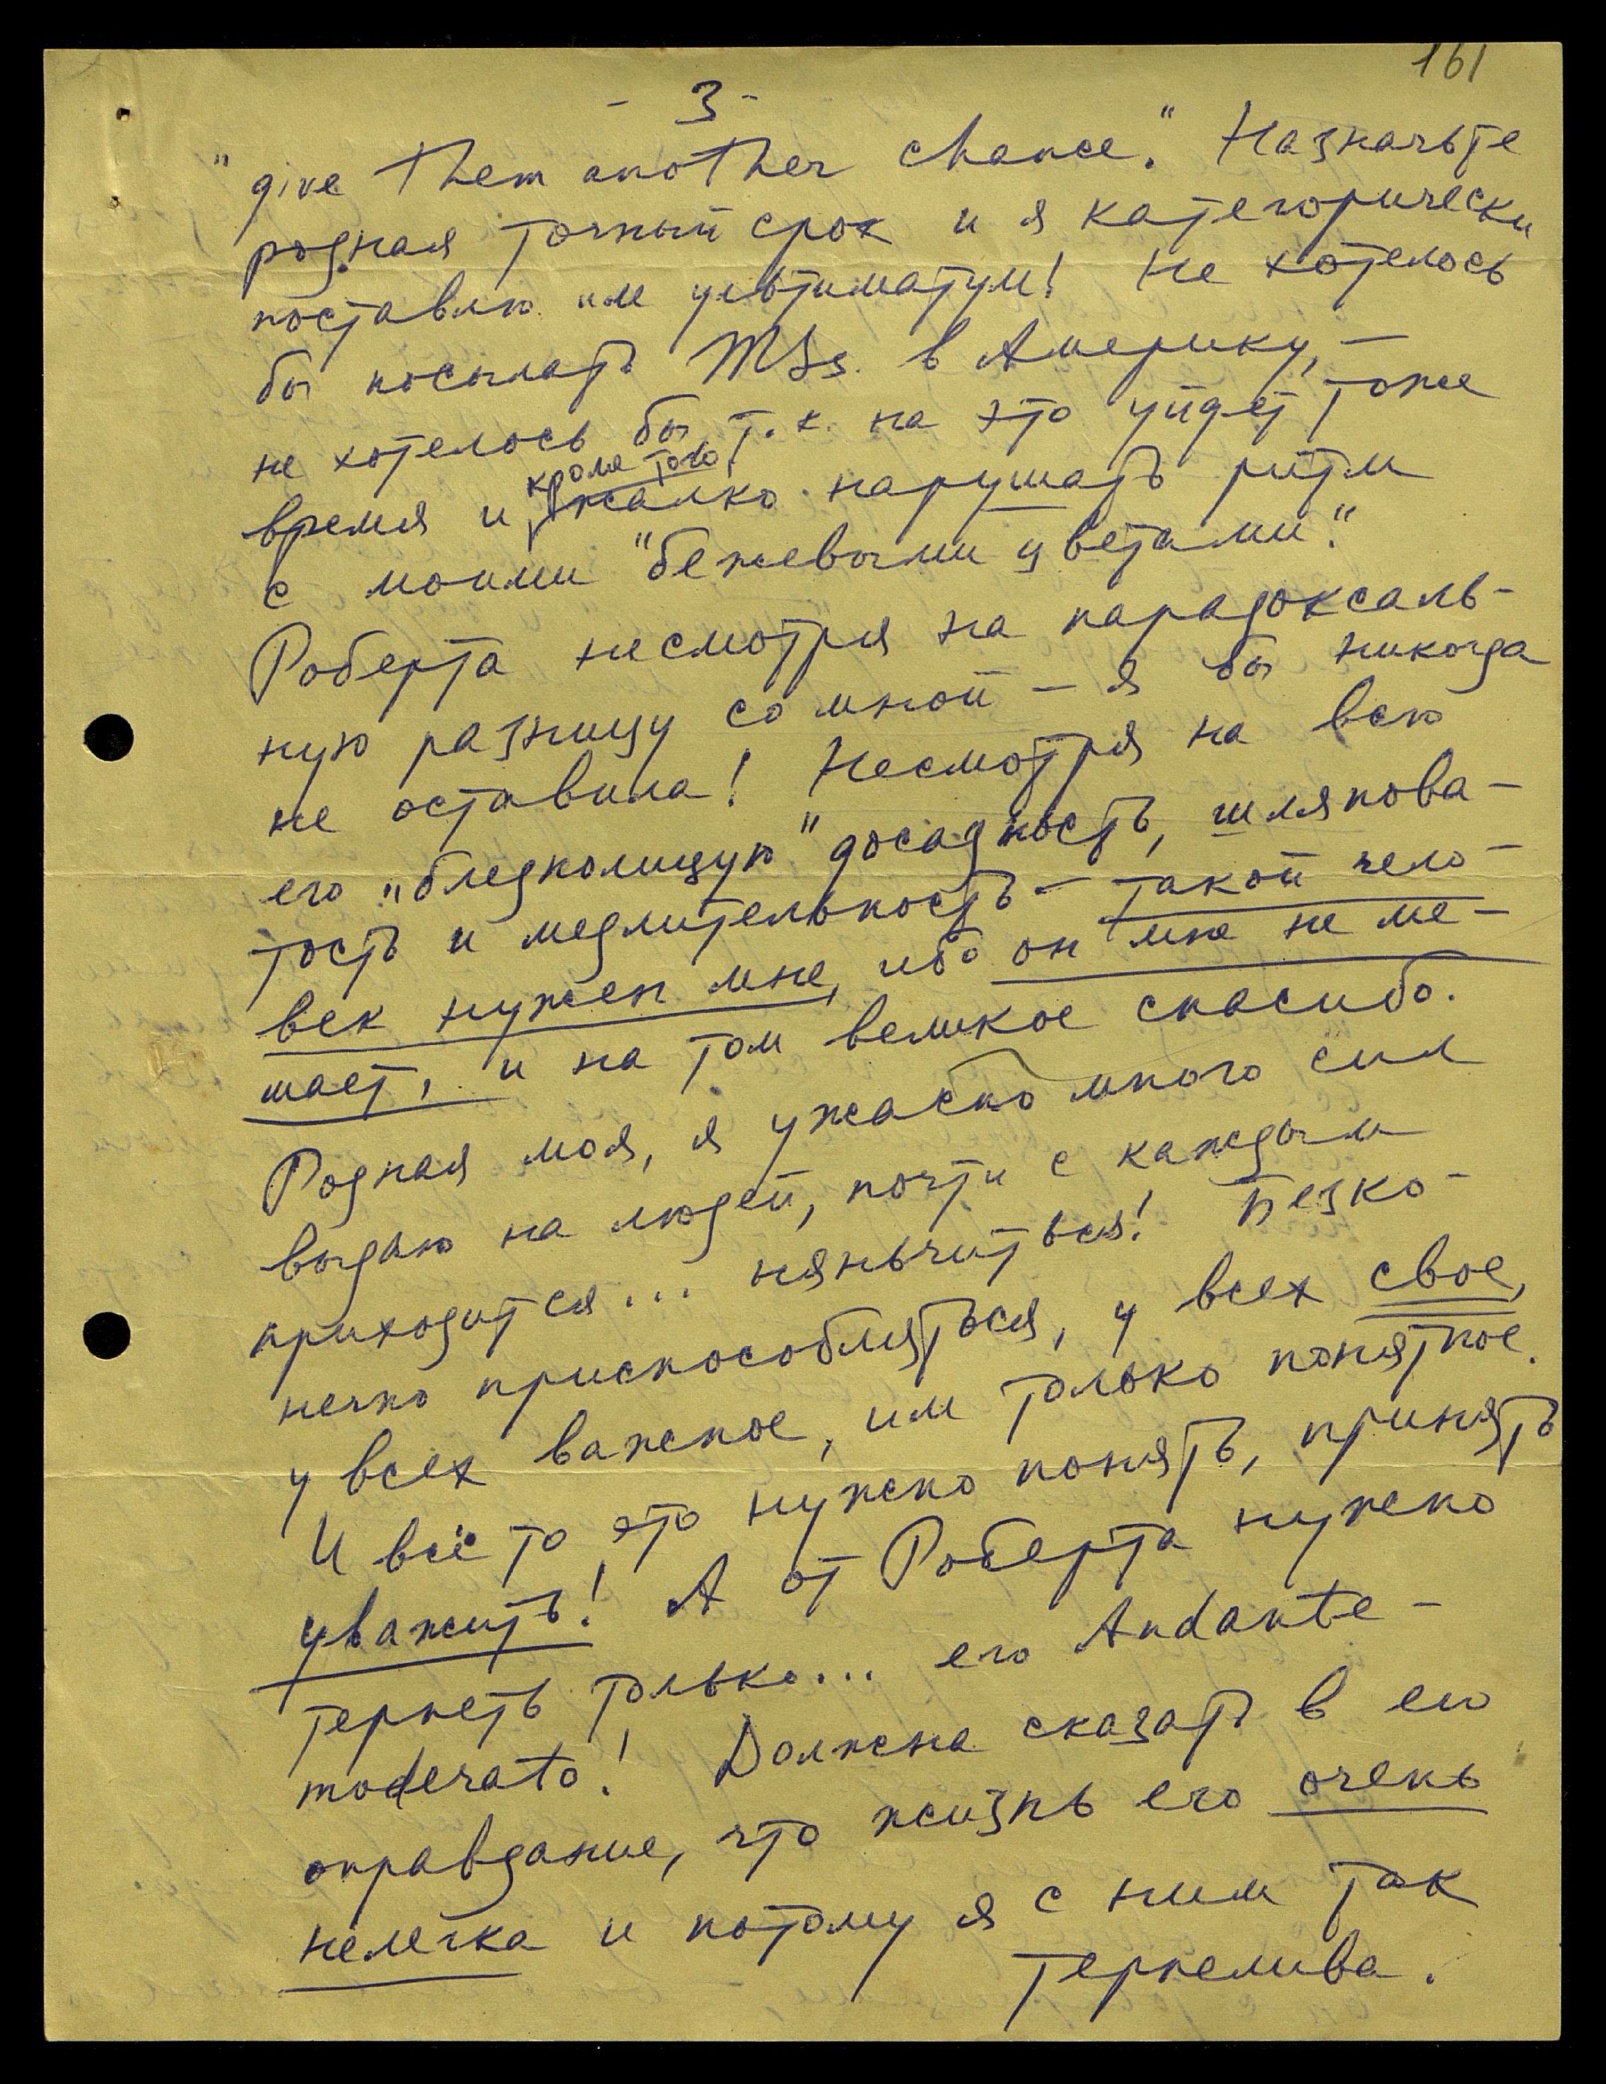 161
- 3 -
"give them another chance." Назначьте
родная точный срок и я категорически
поставлю им ультиматум! Не хотелось
бы посылать MSs. в Америку, –
не хотелось бы, т.к. на это уйдет тоже
время и, кроме того, жалко нарушать ритм
с моими "бежевыми цветами".
Роберта несмотря на парадоксаль-
ную разницу со мной – я бы никогда
не оставила! Несмотря на всю
его "бледнолицую" досадность, шляпова-
тость и медлительность – такой чело-
век нужен мне, ибо он мне не ме-
шает, и на том великое спасибо.
Родная моя, я ужасно много сил
выдаю на людей, почти с каждым
приходится... няньчиться! Безко-
нечно приспособляться, у всех свое,
у всех важное, им только понятное.
И всё то это нужно понять, принять
уважить! А от Роберта нужно
терпеть только... его Andante-
moderato! Должна сказать в его
оправдание, что жизнь его очень
нелегка и потому я с ним так
терпелива.